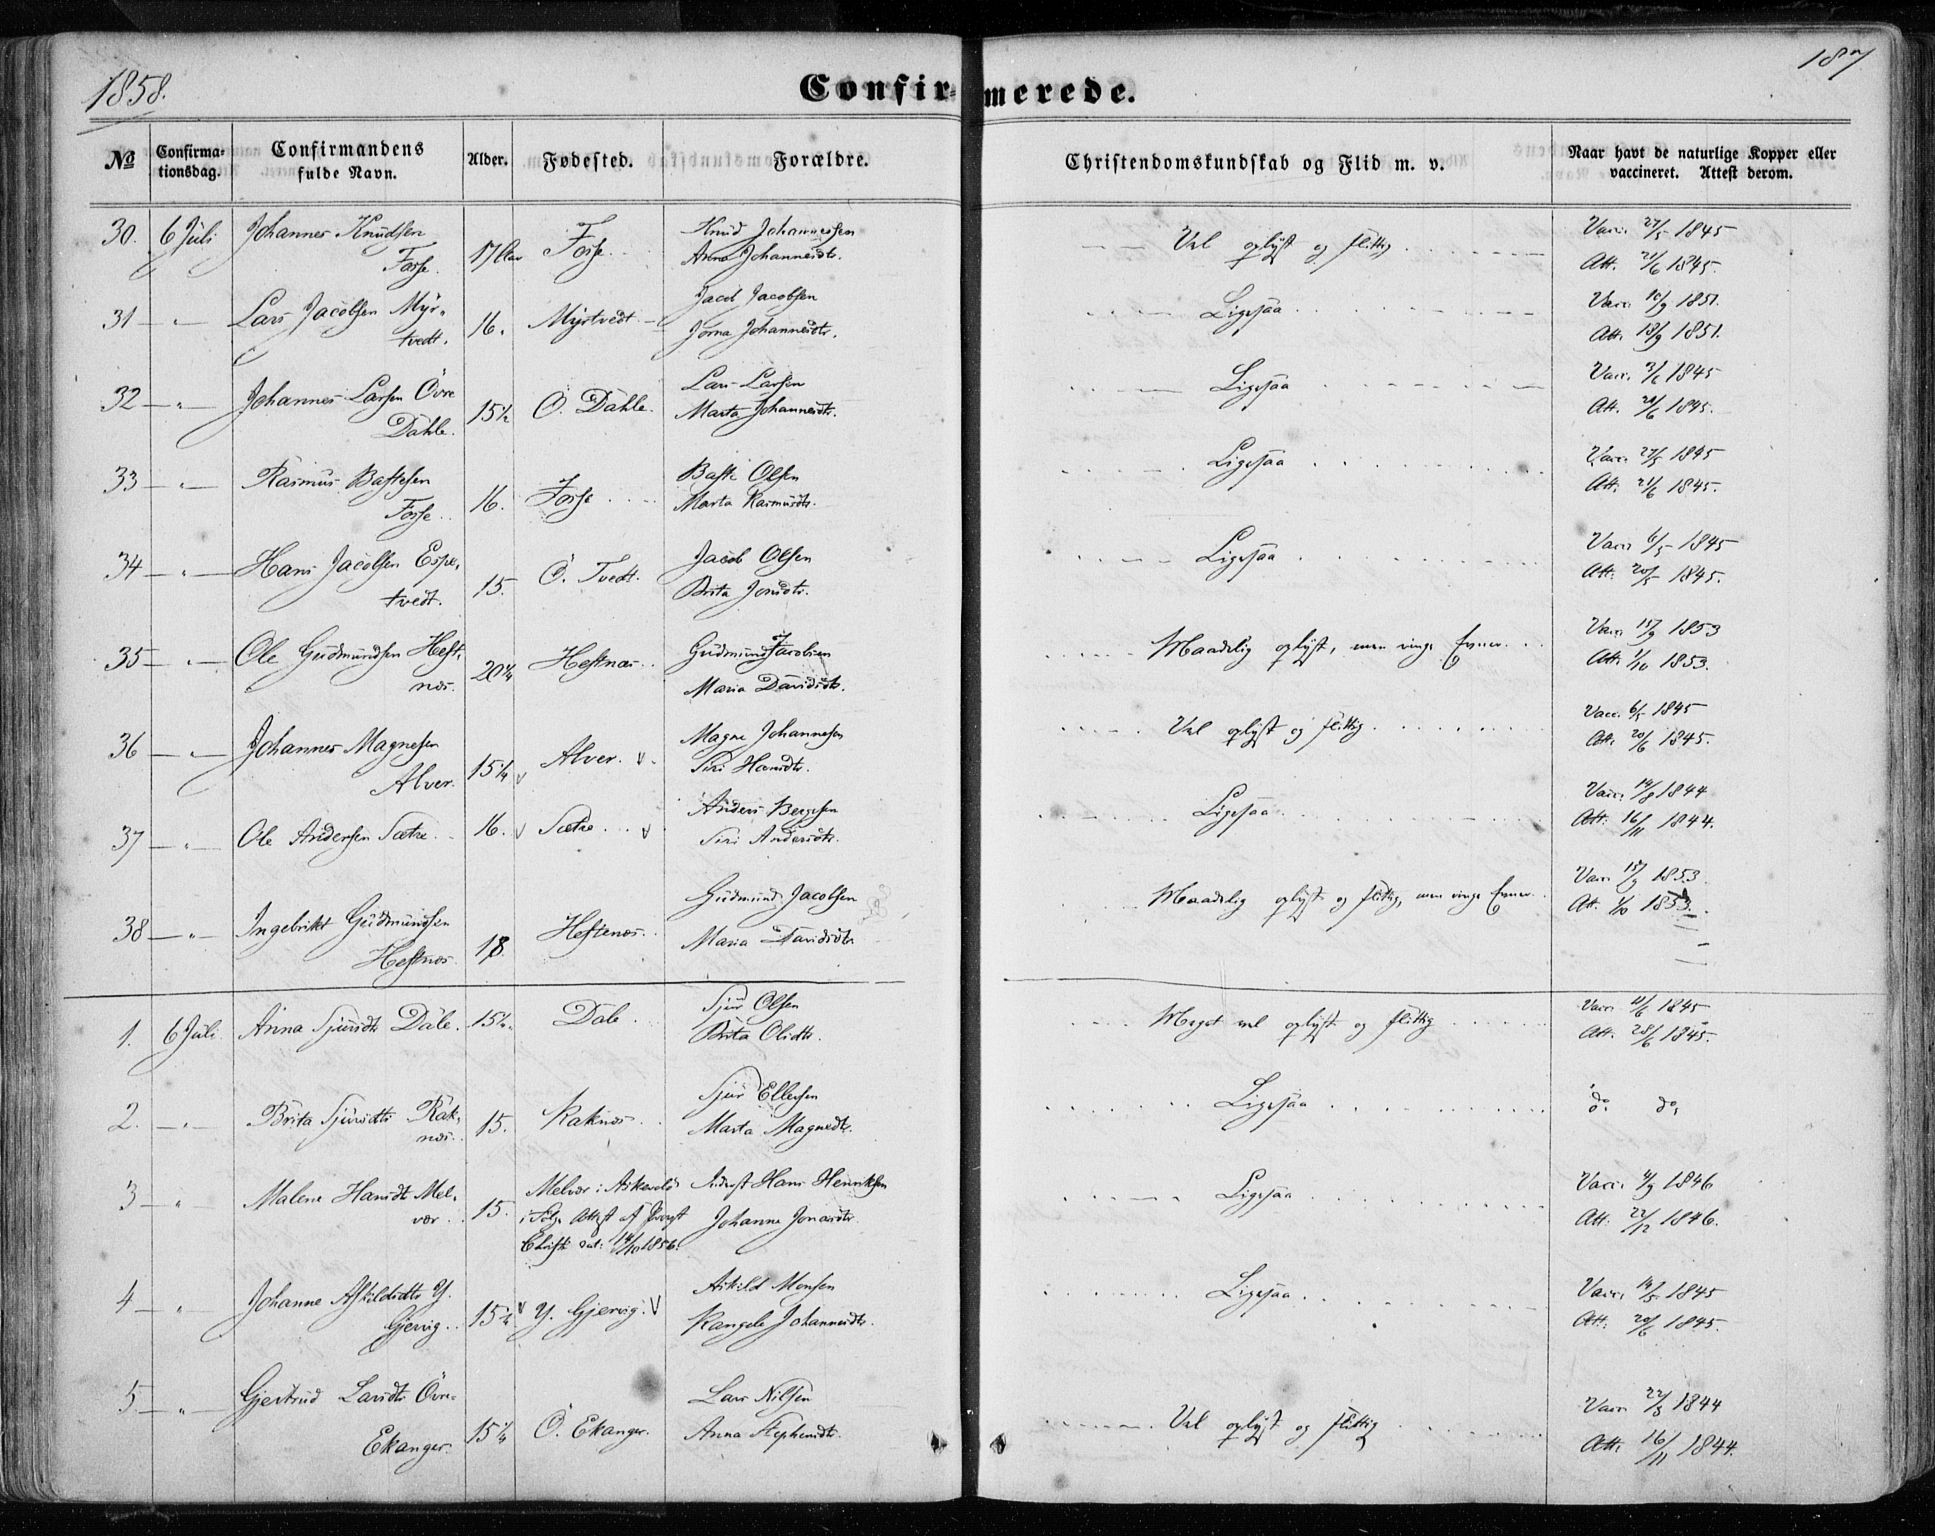 1858.
187
Confirmerede.
No Confirmationsdag. Confirmandens fulde Navn. Alder. Fødested. Forældre. Christendomskundskab og Flid m. v. Naar havt de naturlige Kopper eller vaccineret. Attest derom.
30. 6 Juli Johannes Knudsen Fosse. 17 Fosse Knud Johannessen Anna Johannesdtr. Vel oplyst og flittig Vacc. 27/5 1845 Att. 21/6 1845.
31 — " — Lars Jacobsen Myrtvedt. 16. Myrtvedt. Jacob Jacobsen Johannesdtr. Ligesaa Vacc. 10/9 1851. Att. 18/9 1851.
32 — " — Johannes Larsen Övre Dahle. 15½ Ö. Dahle. Lars Larsen Marta Johannesdtr. Ligesaa Vacc. 1845 Att. 1845.
33 — " — Rasmus Bastesen Fosse. 16. Fosse Baste Olsen Marta Rasmusdtr. Ligesaa Vacc. 27/5 1845 Att. 21/6 1845.
34 — " — Hans Jacobsen Espetvedt. 15. Ö. Tvedt. Jacob Olsen Brita Jonsdtr. Ligesaa Vacc. 6/5 1845 Att. 20/5 1845.
35 — " — Ole Gudmundsen Hestnes. 20¼ Hestnæs Gudmund Jacobsen Maria Davidsdtr. Maadelig oplyst, men ringe Evner. Vacc. 15/9 1853 Att. 1/10 1853.
36 — " — Johannes Magnesen Alver. 15¼ v Alver. v. Magne Johannesen Siri Hansdtr. Vel oplyst og flittig Vacc. 6/5 1845 Att. 20/6 1845.
37 — " — Ole Andersen Sætre. 16. v Sætre v Anders Bergesen Siri Andersdtr. Ligesaa Vacc. 14/8 1844 Att. 16/11 1844.
38 — " — Ingebrikt Gudmundsen Hestnæs. 18. Hestenæs. Gudmund Jacobsen Maria Davidsdtr. Maadelig oplyst og flittig, men ringe Evner. Vacc. 15/9 1853. Att. 1/10 1853.
1. 6 Juli. Anna Sjursdtr Dale. 15½. Dale. Sjur Olsen Brita Olsdtr. Meget vel oplyst og flittig Vacc. 11/6 1845 Att. 28/6 1845.
2. — " — Brita Sjursdtr Raknæs. 15. Raknæs Sjur Ellefsen Marta Magnesdtr. Ligesaa do. do.
3 — " — Malene Hansdtr Melvær. 15. Melvær i Askevold i Følge Attest af Provst dat: 14/10 1856. Hans Henriksen Johanne Jonasdtr. Ligesaa Vacc. 4/9 1846 Att. 22/12 1846.
4 — " — Johanne Askildsdtr Y. Gjervig. 15¼ v Y. Gjervig. v Askild Monsen Rangele Johannesdtr. Ligesaa Vacc. 14/5 1845 Att. 20/6 1845.
5. — " — Gjertrud Larsdtr Övre-Ekanger. 15¼ Ö. Ekanger. Lars Nilsen Anna Stephensdtr. Vel oplyst og flittig Vacc. 22/8 1844 Att. 16/11 1844.